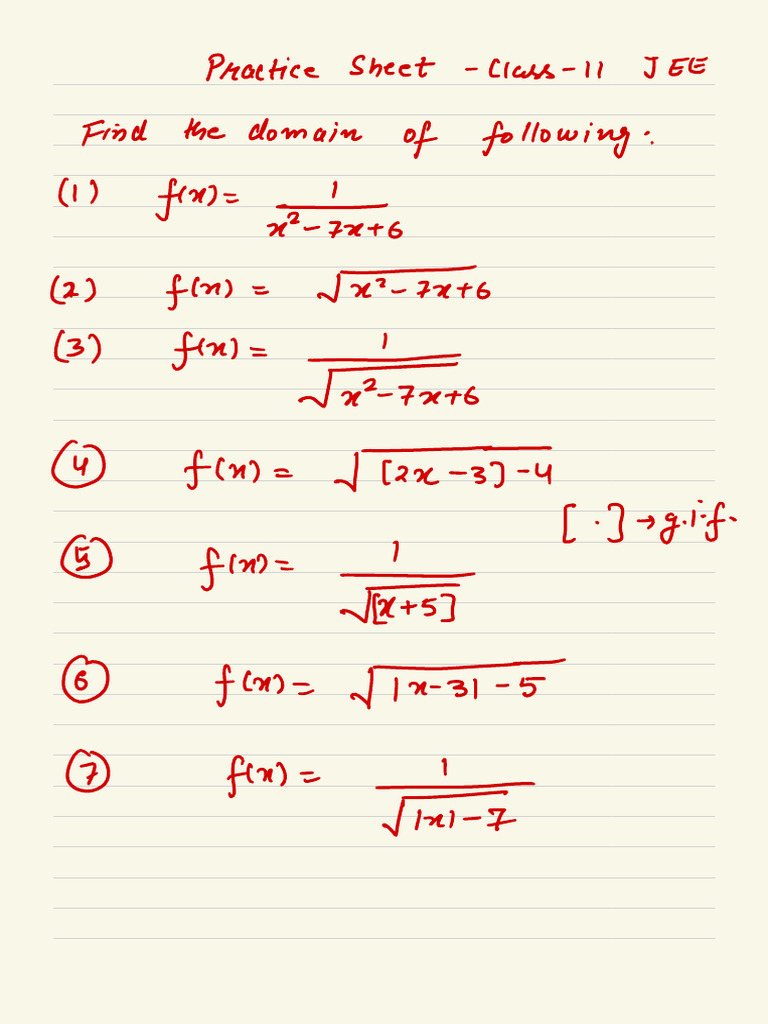 Practice Sheet - Class-11 JEE
Find the domain of following:
(1) f(x) = 1/(x²-7x+6)
(2) f(x) = √(x²-7x+6)
(3) f(x) = 1/√(x²-7x+6)
④ f(x) = √([2x-3]-4)
[.] → g.i.f.
⑤ f(x) = 1/√[x+5]
⑥ f(x) = √(|x-3|-5)
⑦ f(x) = 1/√(|x|-7)